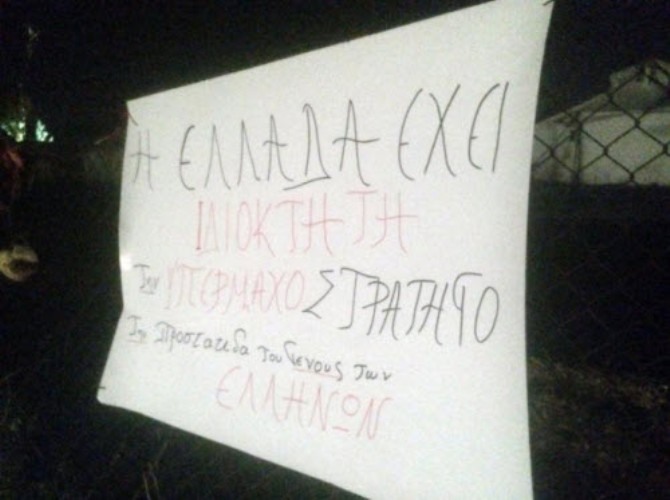 Η ΕΛΛΑΔΑ ΕΧΕΙ
ΙΔΙΟΚΤΗΤΗ
Την ΥΠΕΡΜΑΧΟ ΣΤΡΑΤΗΓΟ
Τη Προστατιδα του Γενους των
ΕΛΛΗΝΩΝ